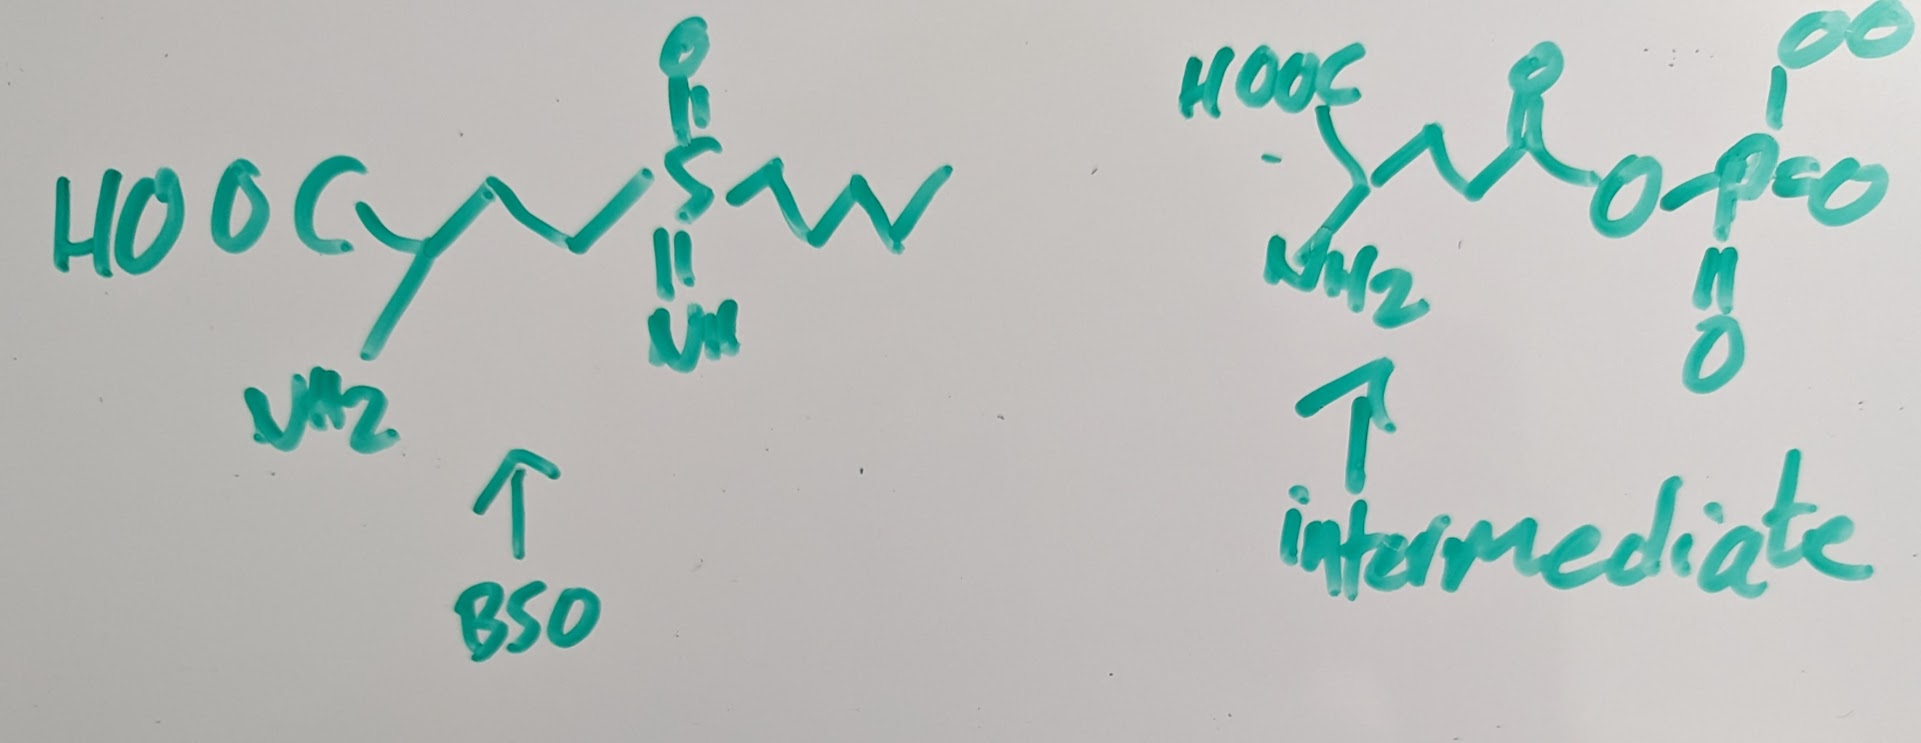 O
HOOC S
NH
NH2
BSO
HOOC O
O P O
NH2
O
intermediate